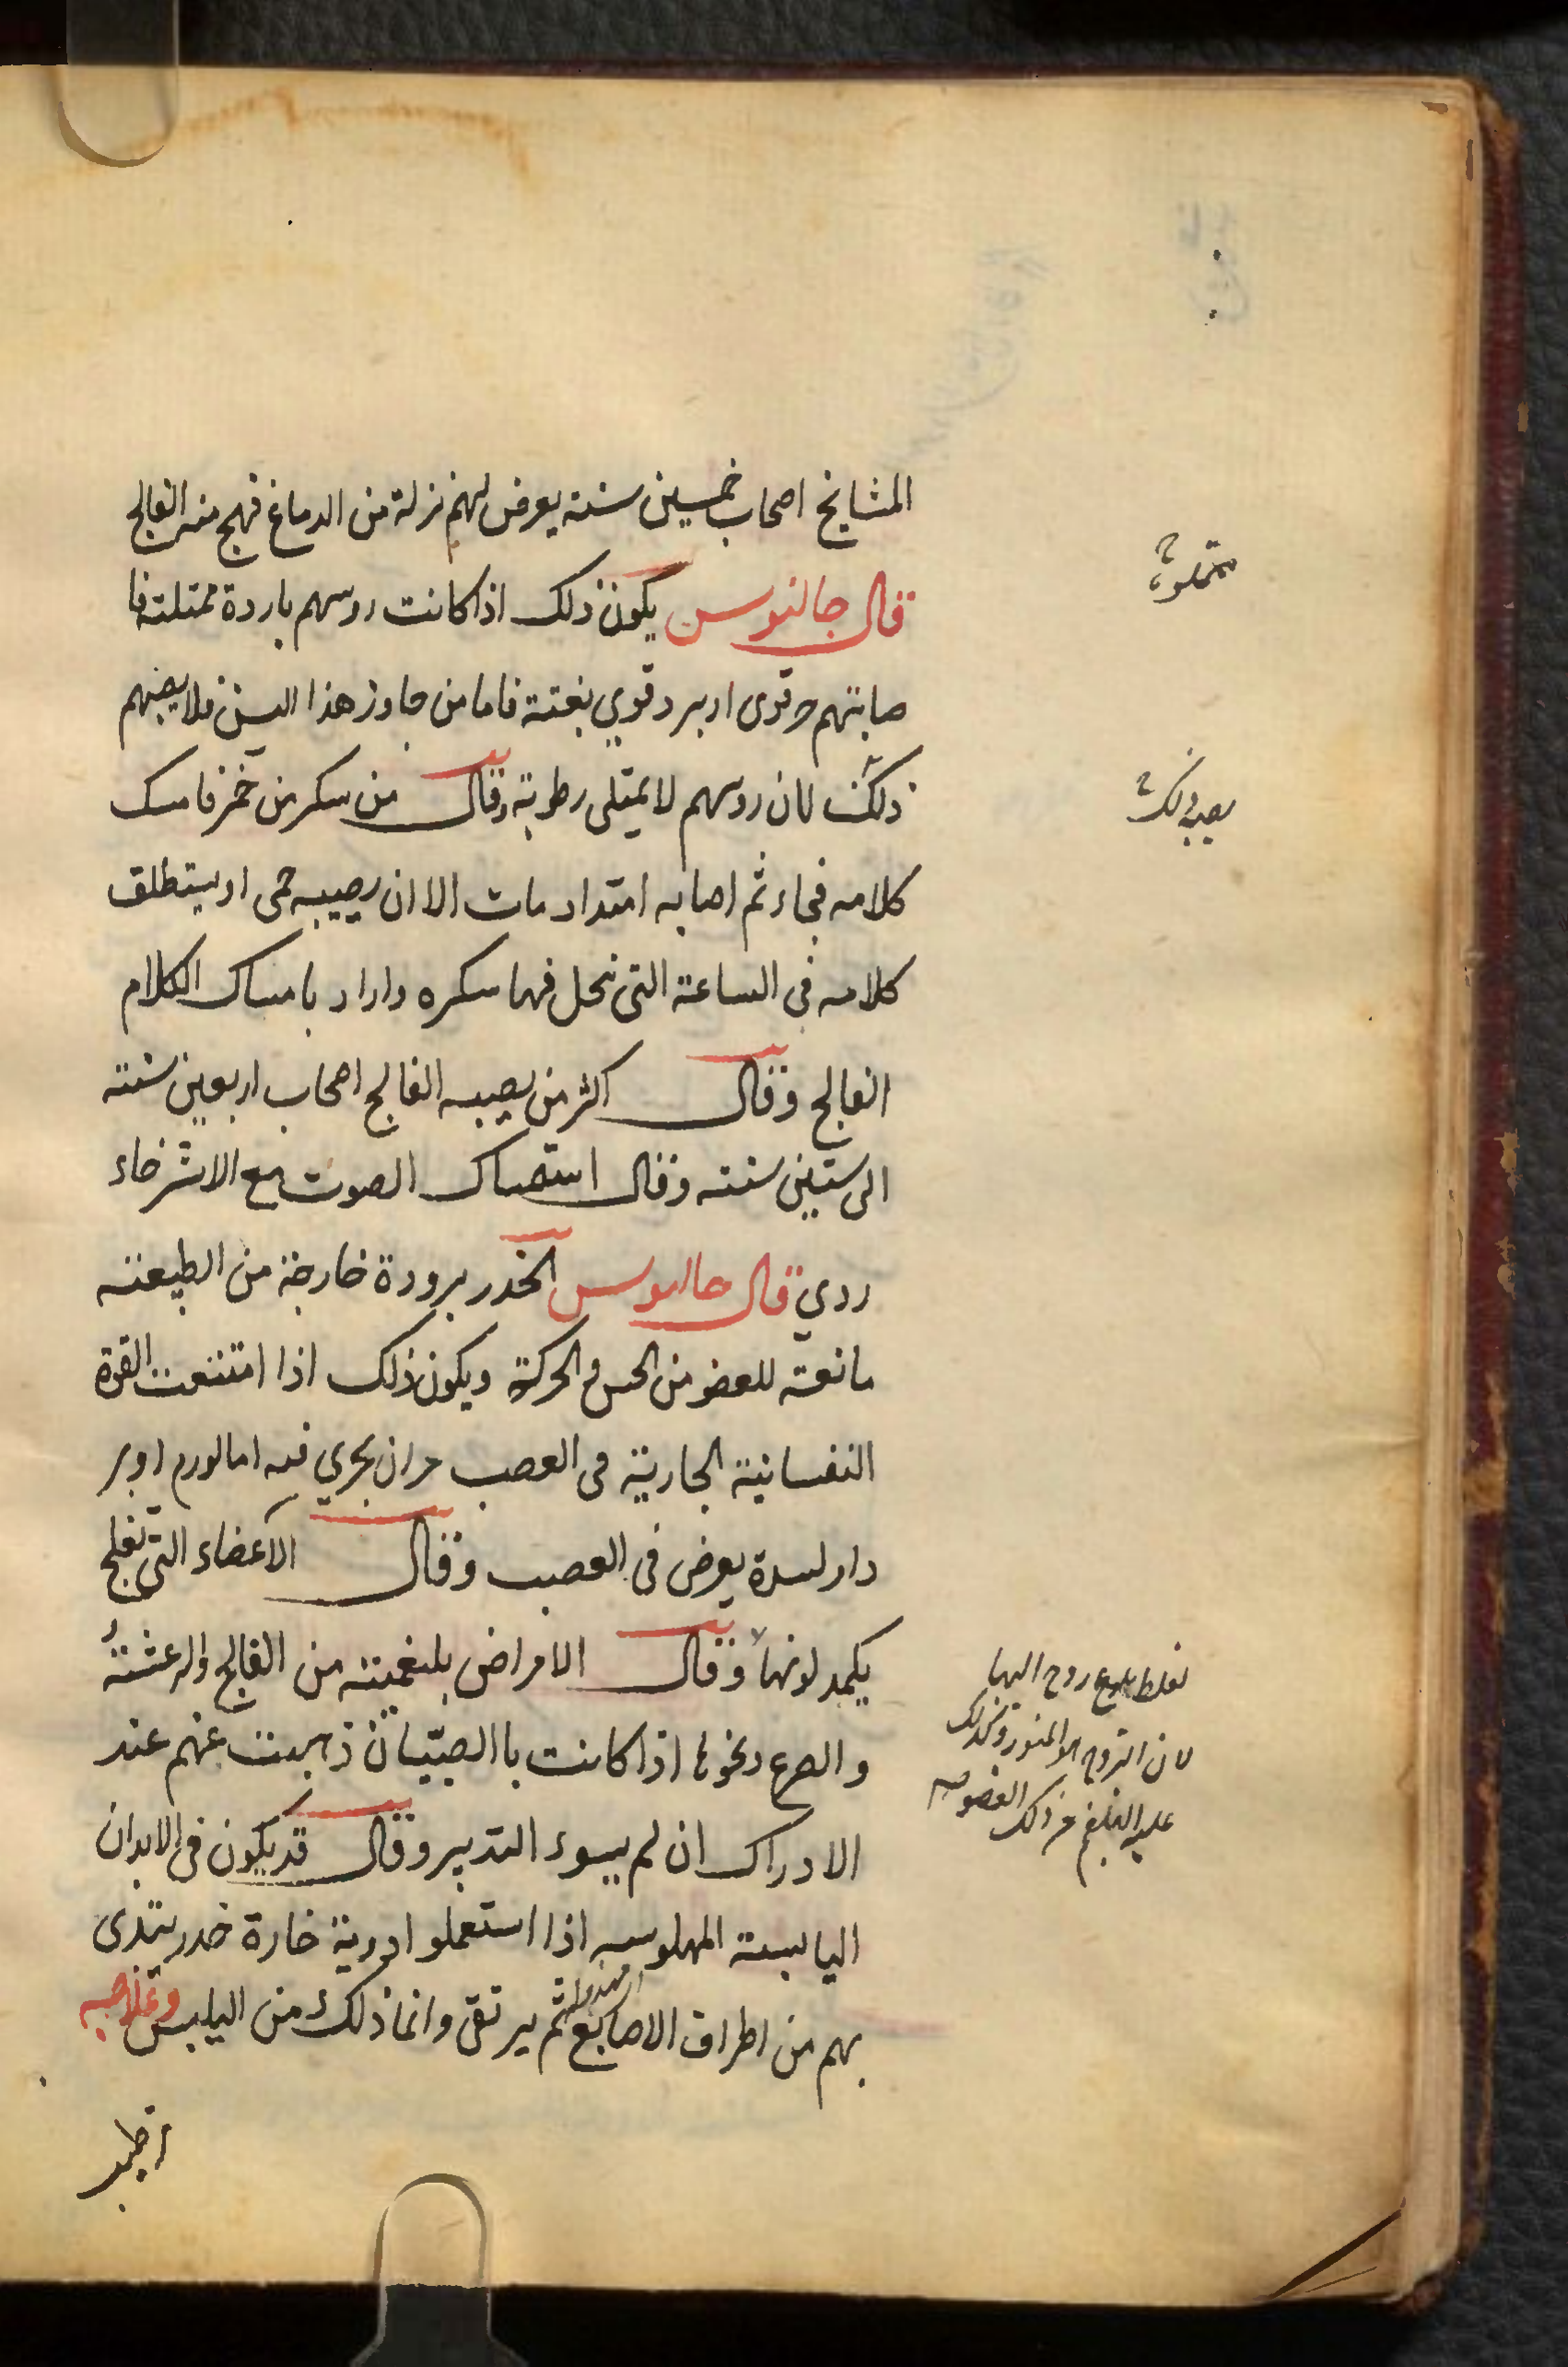 المشايخ اصحاب خمسين سنة يعرض لهم نزلة من الدماغ فهيج منه الفالج
قال جالنوس يكون ذلك اذا كانت روسهم باردة ممتلئة فا
صابتهم حر قوى او برد قوي بغتة فاما من جاوز هذا السن فلا يصيبهم
ذلك لان روسهم لا يمتلى رطوبة وقال من سكر من خمر فامسك
كلامه فجاء ثم اصابه امتداد مات الا ان يصيبه حمى او يستطلق
كلامه فى الساعة التى نحل فيها سكره واراد بامساك الكلام
الفالج وقال اكثر من يصيبه الفالج اصحاب اربعين سنة
الى ستين سنة وقال استمساك الصوت مع الاسترخاء
ردي قال جالينوس الخدر برودة خارجة من الطبيعة
مانعة للعضو من الحس والحركة ويكون ذلك اذا امتنعت القوة
النفسانية الجارية فى العصب من ان يجري فيه اما لورم او بر
داو لسدة يعرض فى العصب وقال الاعضاء التى تفلج
يكمد لونها وقال الامراض بلغمية من الفالج والرعشة
والصرع ونحوها اذا كانت باالصبيان ذهبت عنهم عند
الادراك ان لم يسوء التدبير وقال قد يكون فى الابدان
اليابسة المهلوسه اذا استعملو ادوية حارة خدر يبتدى
بهم من اطراف الاصابع ثم يرتقى وانما ذلك من اليابس
يصيبه ذلك
لغلط بلوغ روح اليها
لان الروح هو المنور وكذلك